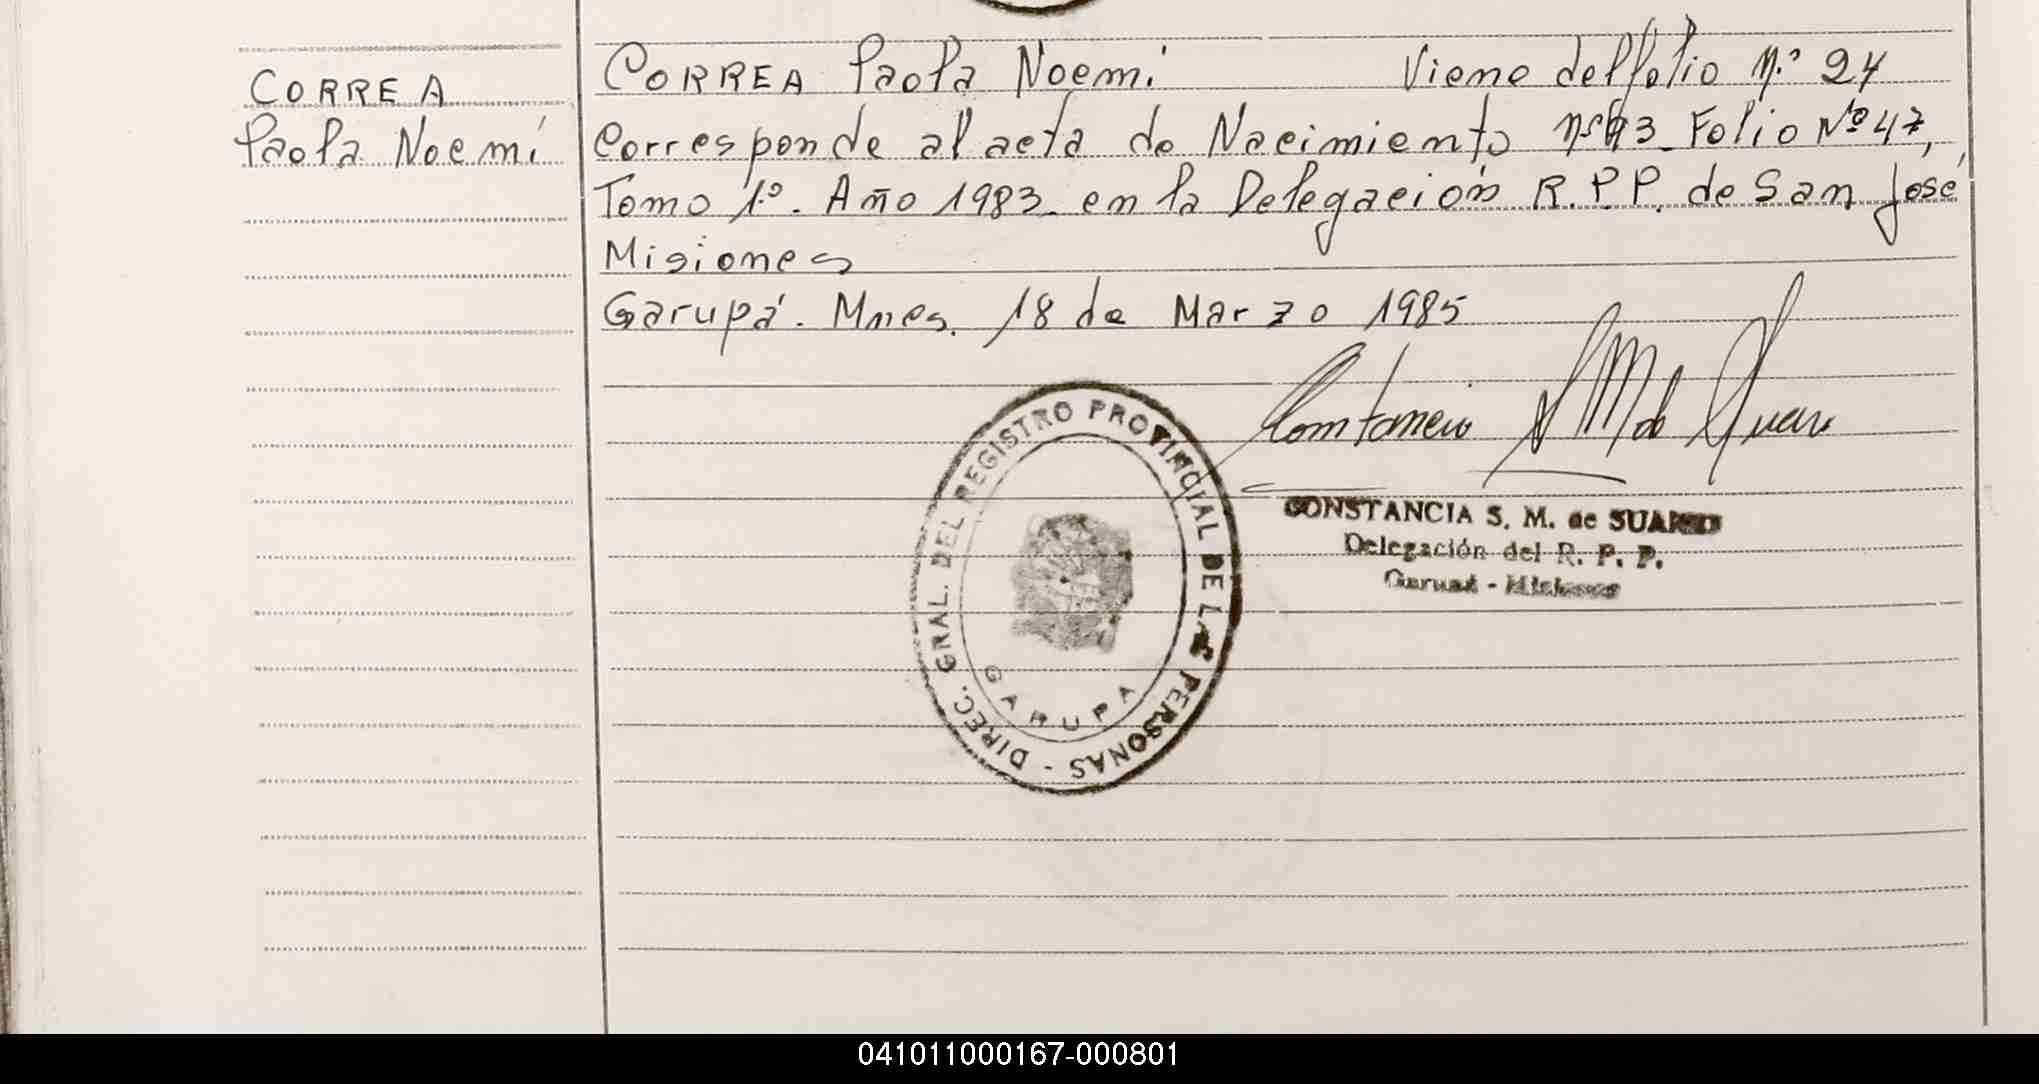 CORREA
Paola Noemí
CORREA Paola Noemi Viene del folio n.º 24
Corresponde al acta de Nacimiento nº 93 Folio Nº 47,
Tomo 1º. Año 1983 en la Delegación R.P.P. de San José
Misiones
Garupá. Mnes. 18 de Marzo 1985
CONSTANCIA S. M. de SUAREZ
Delegación del R. P. P.
Garupá - Misiones
DIREC. GRAL. DEL REGISTRO PROVINCIAL DE LAS PERSONAS -
GARUPA
041011000167-000801